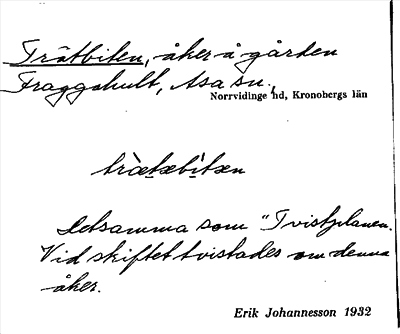 Trätbiten, åker å gården
Fraggahult, Asa sn.,
Norrvidinge hd, Kronobergs län
trætæbìtæn
Detsamma som "Tvistplanen.
Vid skiftet tvistades om denna
åker.
Erik Johannesson 1932